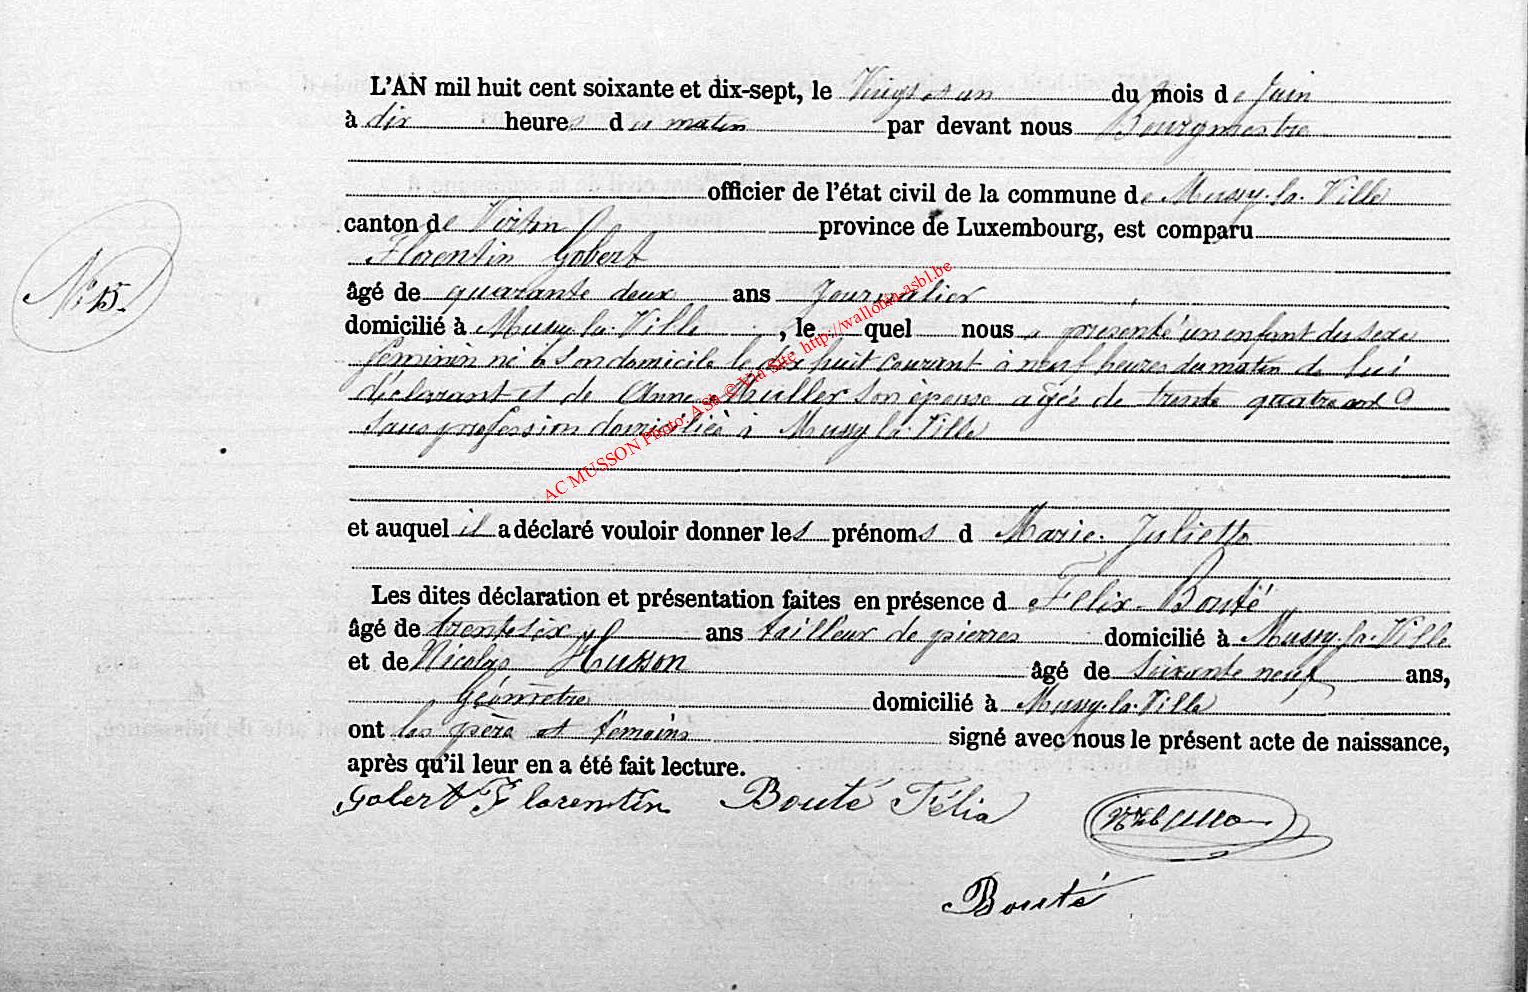 L'AN mil huit cent soixante et dix-sept, le Vingt et un du mois de Juin
à dix heures du matin par devant nous Bourgmestre
officier de l'état civil de la commune de Mussy-la-Ville
canton de Virton province de Luxembourg, est comparu
Florentin Gobert
N° 15.
âgé de quarante deux ans Journalier
domicilié à Mussy-la-Ville, le quel nous a présenté un enfant du sexe
féminin né à son domicile le dix huit courant à neuf heures du matin de lui
déclarant et de Anne Muller son épouse agée de trente quatre ans
sans profession domiciliée à Mussy la Ville
AC MUSSON Photo: ASh © Via Site http://wallonia-asbl.be
et auquel il a déclaré vouloir donner les prénoms d Marie-Juliette
Les dites déclaration et présentation faites en présence d Félix Bouté
âgé de trente six ans tailleur de pierres domicilié à Mussy-la-Ville
et de Nicolas Husson âgé de Soixante neuf ans,
Géomètre domicilié à Mussy-la-Ville
ont les père et témoins signé avec nous le présent acte de naissance,
après qu'il leur en a été fait lecture.
Gobert Florentin Bouté Félix
Bouté